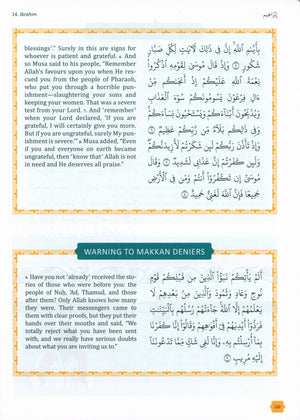 14. Ibrahim
إبراهيم
blessings˺.” Surely in this are signs for
whoever is patient and grateful. 6. And
so Musa said to his people, “Remember
Allah’s favours upon you when He res-
cued you from the people of Pharaoh,
who put you through a horrible pun-
ishment—slaughtering your sons and
keeping your women. That was a severe
test from your Lord. 7. And ˹remember˺
when your Lord declared, ‘If you are
grateful, I will certainly give you more.
But if you are ungrateful, surely My pun-
ishment is severe.’” 8. Musa added, “Even
if you and everyone on earth became
ungrateful, then ˹know that˺ Allah is not
in need and He deserves all praise.”
بِأَيَّىٰمِ ٱللَّهِ إِنَّ فِى ذَٰلِكَ لَـَٔايَـٰتٍ لِّكُلِّ صَبَّارٍ
شَكُورٍ ٥ وَإِذْ قَالَ مُوسَىٰ لِقَوْمِهِ ٱذْكُرُوا۟
نِعْمَةَ ٱللَّهِ عَلَيْكُمْ إِذْ أَنجَىٰكُم مِّنْ
ءَالِ فِرْعَوْنَ يَسُومُونَكُمْ سُوٓءَ ٱلْعَذَابِ
وَيُذَبِّحُونَ أَبْنَآءَكُمْ وَيَسْتَحْيُونَ نِسَآءَكُمْ
وَفِى ذَٰلِكُم بَلَآءٌ مِّن رَّبِّكُمْ عَظِيمٌ ٦
وَإِذْ تَأَذَّنَ رَبُّكُمْ لَئِن شَكَرْتُمْ لَأَزِيدَنَّكُمْ
وَلَئِن كَفَرْتُمْ إِنَّ عَذَابِى لَشَدِيدٌ ٧ وَقَالَ
مُوسَىٰٓ إِن تَكْفُرُوٓا۟ أَنتُمْ وَمَن فِى ٱلْأَرْضِ
جَمِيعًا فَإِنَّ ٱللَّهَ لَغَنِىٌّ حَمِيدٌ ٨
WARNING TO MAKKAN DENIERS
9. Have you not ˹already˺ received the sto-
ries of those who were before you: the
people of Nuh, ‘Ad, Thamud, and those
after them? Only Allah knows how many
they were. Their messengers came to
them with clear proofs, but they put their
hands over their mouths and said, “We
totally reject what you have been sent
with, and we really have serious doubts
about what you are inviting us to.”
أَلَمْ يَأْتِكُمْ نَبَؤُا۟ ٱلَّذِينَ مِن قَبْلِكُمْ قَوْمِ
نُوحٍ وَعَادٍ وَثَمُودَ وَٱلَّذِينَ مِنۢ بَعْدِهِمْ لَا
يَعْلَمُهُمْ إِلَّا ٱللَّهُ جَآءَتْهُمْ رُسُلُهُم بِٱلْبَيِّنَـٰتِ
فَرَدُّوٓا۟ أَيْدِيَهُمْ فِىٓ أَفْوَٰهِهِمْ وَقَالُوٓا۟ إِنَّا كَفَرْنَا
بِمَآ أُرْسِلْتُم بِهِۦ وَإِنَّا لَفِى شَكٍّ مِّمَّا تَدْعُونَنَآ
إِلَيْهِ مُرِيبٍ ٩